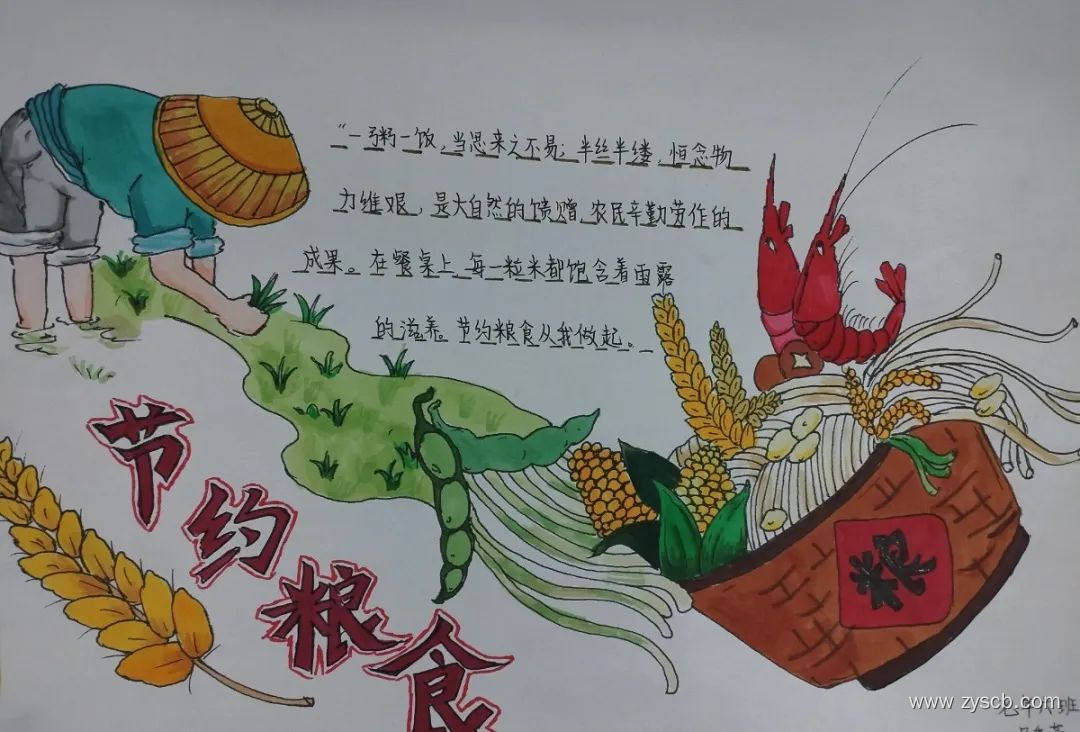 “一粥一饭，当思来之不易；半丝半缕，恒念物
力维艰，是大自然的馈赠，农民辛勤劳作的
成果。在餐桌上，每一粒米都饱含着雨露
的滋养。节约粮食从我做起。
节约粮食
粮
www.zyscb.com
班